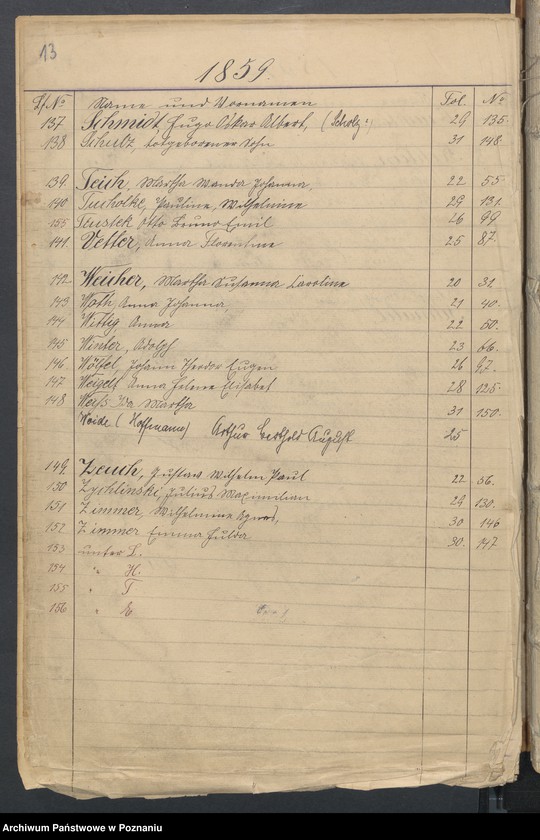 13
1859.
Lf. No Name und Vornamen Fol. No
137 Schmidt, Hugo Oskar Albert, (Scholz?) 29 135.
138 Schulz, totgeborener Sohn 31 148.
139. Teich, Martha Wanda Johanna, 22 55.
140 Tucholke, Pauline, Wilhelmine 29 131.
155 Otto Bruno Emil 26 99.
141 Vetter, Anna Florentine 25 87.
142 Weicher, Martha Susanna Caroline 20 31.
143 Woth, Anna Johanna, 21 40.
144 Wittig Anna 22 50.
145 Winter, Adolph 23 66.
146. Wölfel, Johann Theodor Eugen 26 92.
147 Weigelt, Anna Helene Elisabet 28 125.
148 Weiß, Ida Martha 31 150.
Weide (Hoffmann) Arthur Berthold August 25
149. Zeuch, Gustav Wilhelm Paul 22 56.
150 Zychlinski, Julius Maximilian 29 130.
151 Zimmer, Wilhelmine Agnes, 30 146
152 Zimmer Emma Hulda 30. 147
153 unter L.
154 " H.
155 " T
156 " E
Archiwum Państwowe w Poznaniu